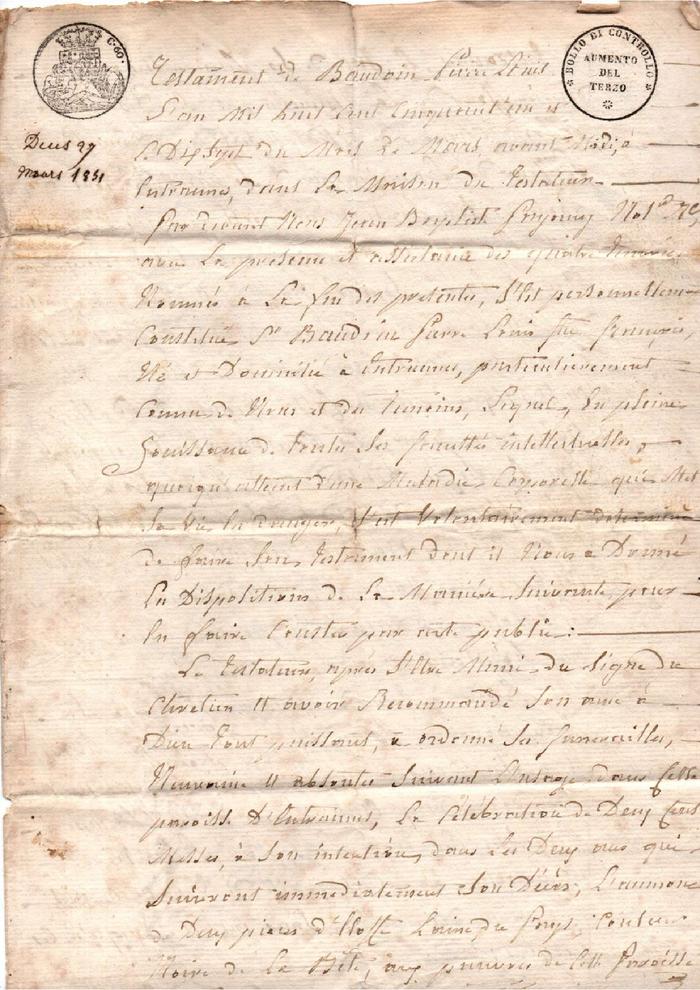 C. 60.
BOLLO DI CONTROLLO
AUMENTO
DEL
TERZO
Deces 27
mars 1851
Testament de Baudoin Pierre Louis
L'an Mil huit Cent Cinquant'un et
Le Dix Sept du Mois de Mars, avant Midi, à
Entraunes, dans La Maison du Testateur
Par devant Nous Jean Baptist
avec La présence et assistance des quatre temoins
Nommés à La fin des présentes, S'est personnellement
Constitué Sr Baudoin Pierre Louis feu françois,
Né et Domicilié à Entraunes, particulièrement
Connu de Nous et des temoins, Lequel, En pleine
Jouissance de toutes Ses facultés intellectuelles,
quoiqu'atteint d'une Maladie Corporelle qui Met
Sa vie En danger, S'est Volontairement determiné
de faire Son testament dont il Nous a Donné
Les Dispositions de La Manière Suivante pour
En faire Conster par acte public:
Le Testateur, après S'être Muni du Signe du
Chretien et avoir Recommandé Son ame à
Dieu tout puissant, a ordonné Ses funerailles,
Neuvaine et absoutes Suivant L'usage dans Cette
paroisse D'Entraunes, La Célébration de Deux Cents
Messes, à Son intention, dans Les Deux ans qui
Suivront immédiatement Son Décès, L'aumone
de Deux pieces d'étoffe Laine du pays, Couleur
Noire de La Bête, aux pauvres de Cette Paroisse